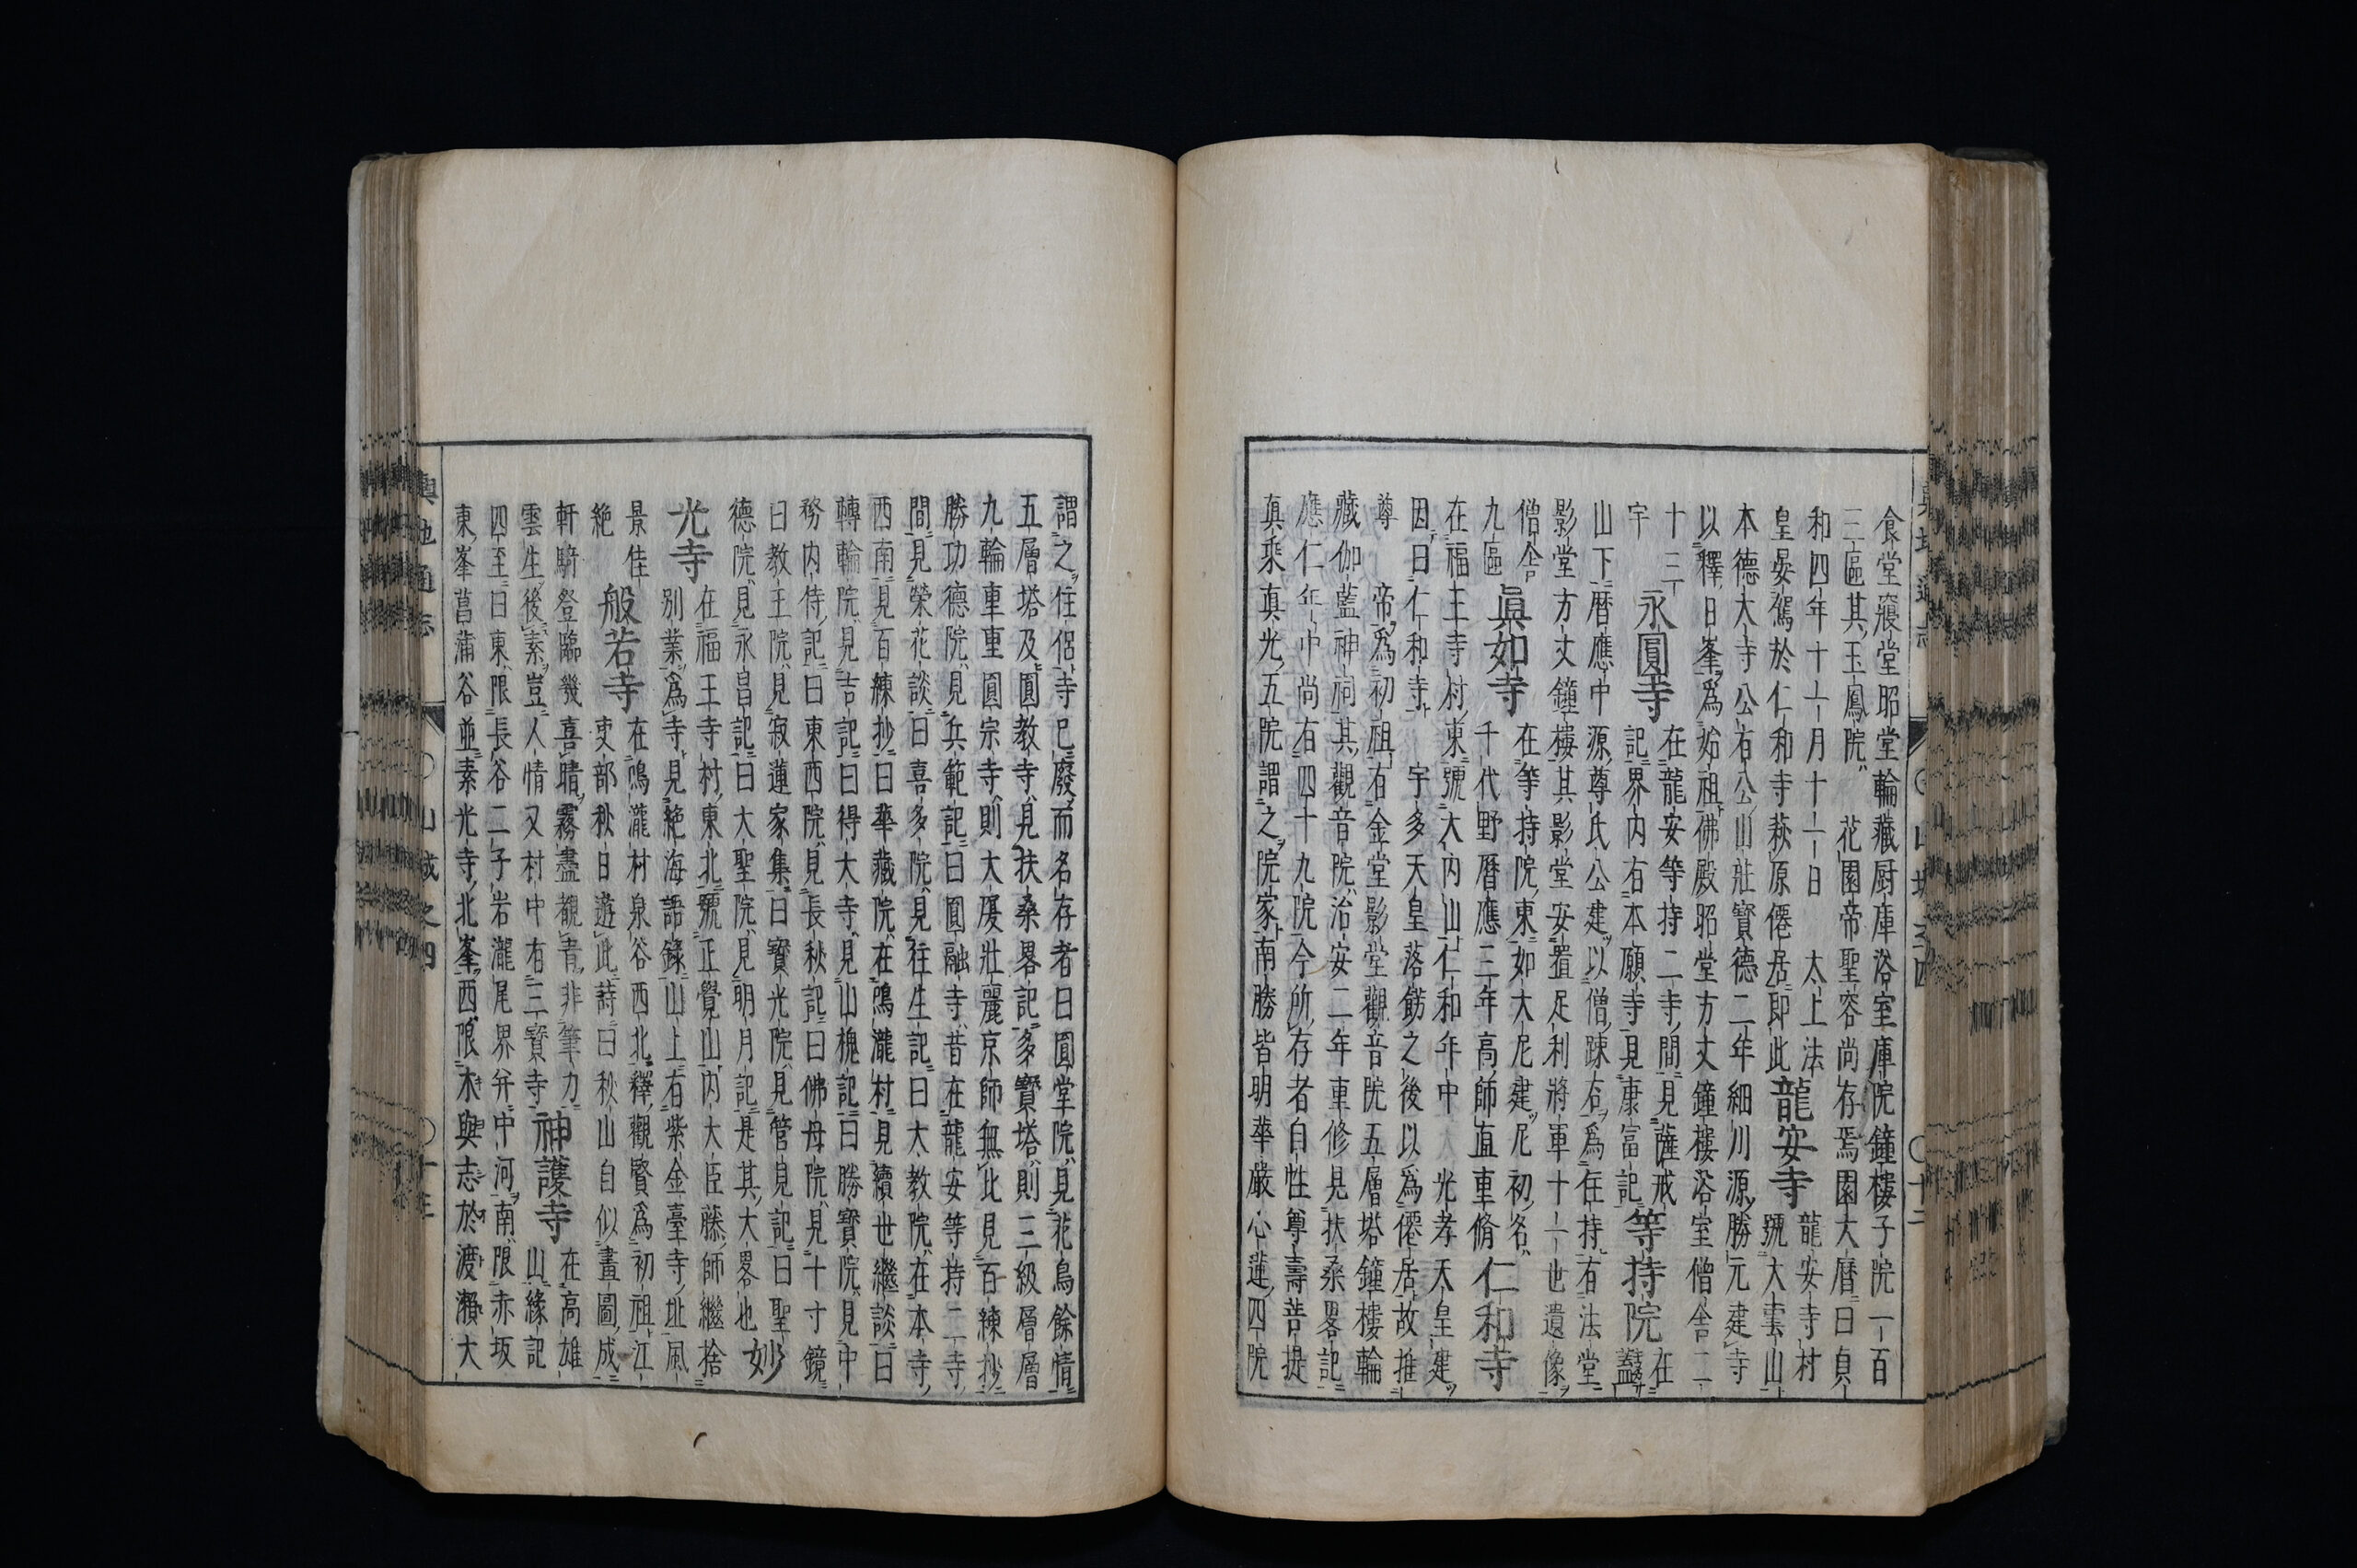 食堂寢堂昭堂輪藏厨庫浴室庫院鐘樓子院一百
三區其玉鳳院花園帝聖容尚存焉園大暦曰貞
和四年十一月十一日太上法龍安寺村
皇晏駕於仁和寺萩原僊居即此龍安寺號大雲山
本德大寺公有公山莊寳德二年細川源勝元建寺
以釋日峯爲始祖佛殿昭堂方丈鐘樓浴室僧舎二
十三在龍安等持二寺間見薩戒等持院在
宇永圓寺記界内有本願寺見康富記
山下暦應中源尊氏公建以僧踈石爲住持有法堂
影堂方丈鐘樓其影堂安置足利將軍十一世遺像
僧舎眞如寺在等持院東如大尼建尼初名仁和寺
九區千代野暦應三年高師直車脩
在福王寺村東號大内山仁和年中光孝天皇建
因曰仁和寺宇多天皇落餝之後以爲僊居故推
尊帝爲初祖有金堂影堂觀音院五層塔鐘樓輪
藏伽藍神祠其觀音院治安二年重修見扶桑畧記
應仁年中尚有四十九院今所存者自性尊壽菩提
真乘真光五院謂之院家南勝皆明華嚴心蓮四院
謂之住侶寺已廢而名存者曰圓堂院見花鳥餘情
五層塔及圓教寺見扶桑畧記多寳塔則三級層層
九輪車重圓宗寺則大厦壯麗京師無比見百練抄
勝功德院見兵範記曰圓融寺昔在龍安等持二寺
間見榮花談曰喜多院見往生記曰大教院在本寺
西南見百練抄曰華藏院在鳴瀧村見續世繼談曰
轉輪院見吉記曰得大寺見山槐記曰勝寳院見中
務内侍記曰東西院見長秋記曰佛母院見十寸鏡
曰教王院見寂蓮家集曰寳光院見管見記曰聖
德院見永昌記曰大聖院見明月記是其大畧也妙
光寺在福王寺村東北號正覺山内大臣藤師繼捨
別業爲寺見絶海語錄山上有紫金臺寺址風
景佳般若寺在鳴瀧村泉谷西北釋觀賢爲初祖江
絶吏部秋日遊此詩曰秋山自似畫圖成
軒騎登臨幾喜晴霧盡覩青非筆力神護寺在高雄
雲生後素豈人情又村中有三寳寺山緣記
四至曰東限長谷二子岩瀧尾界并中河南限赤坂
東峯菖蒲谷並素光寺北峯西限木與志於渡瀬大
輿地通志
○山城之四